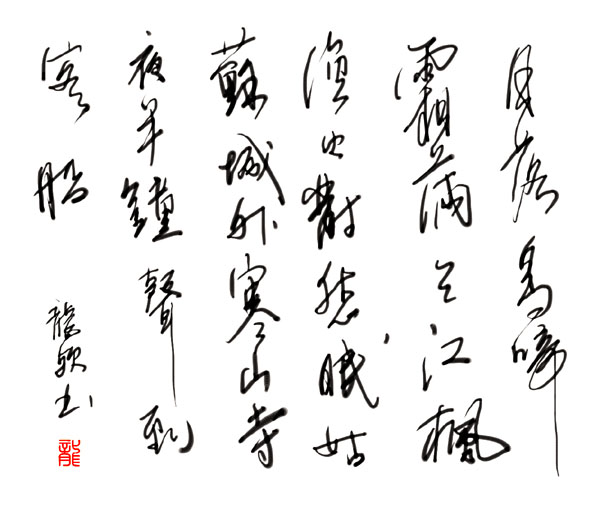 月落烏啼
霜滿天江楓
漁火對愁眠姑
蘇城外寒山寺
夜半鐘聲到
客船
龍书
龍